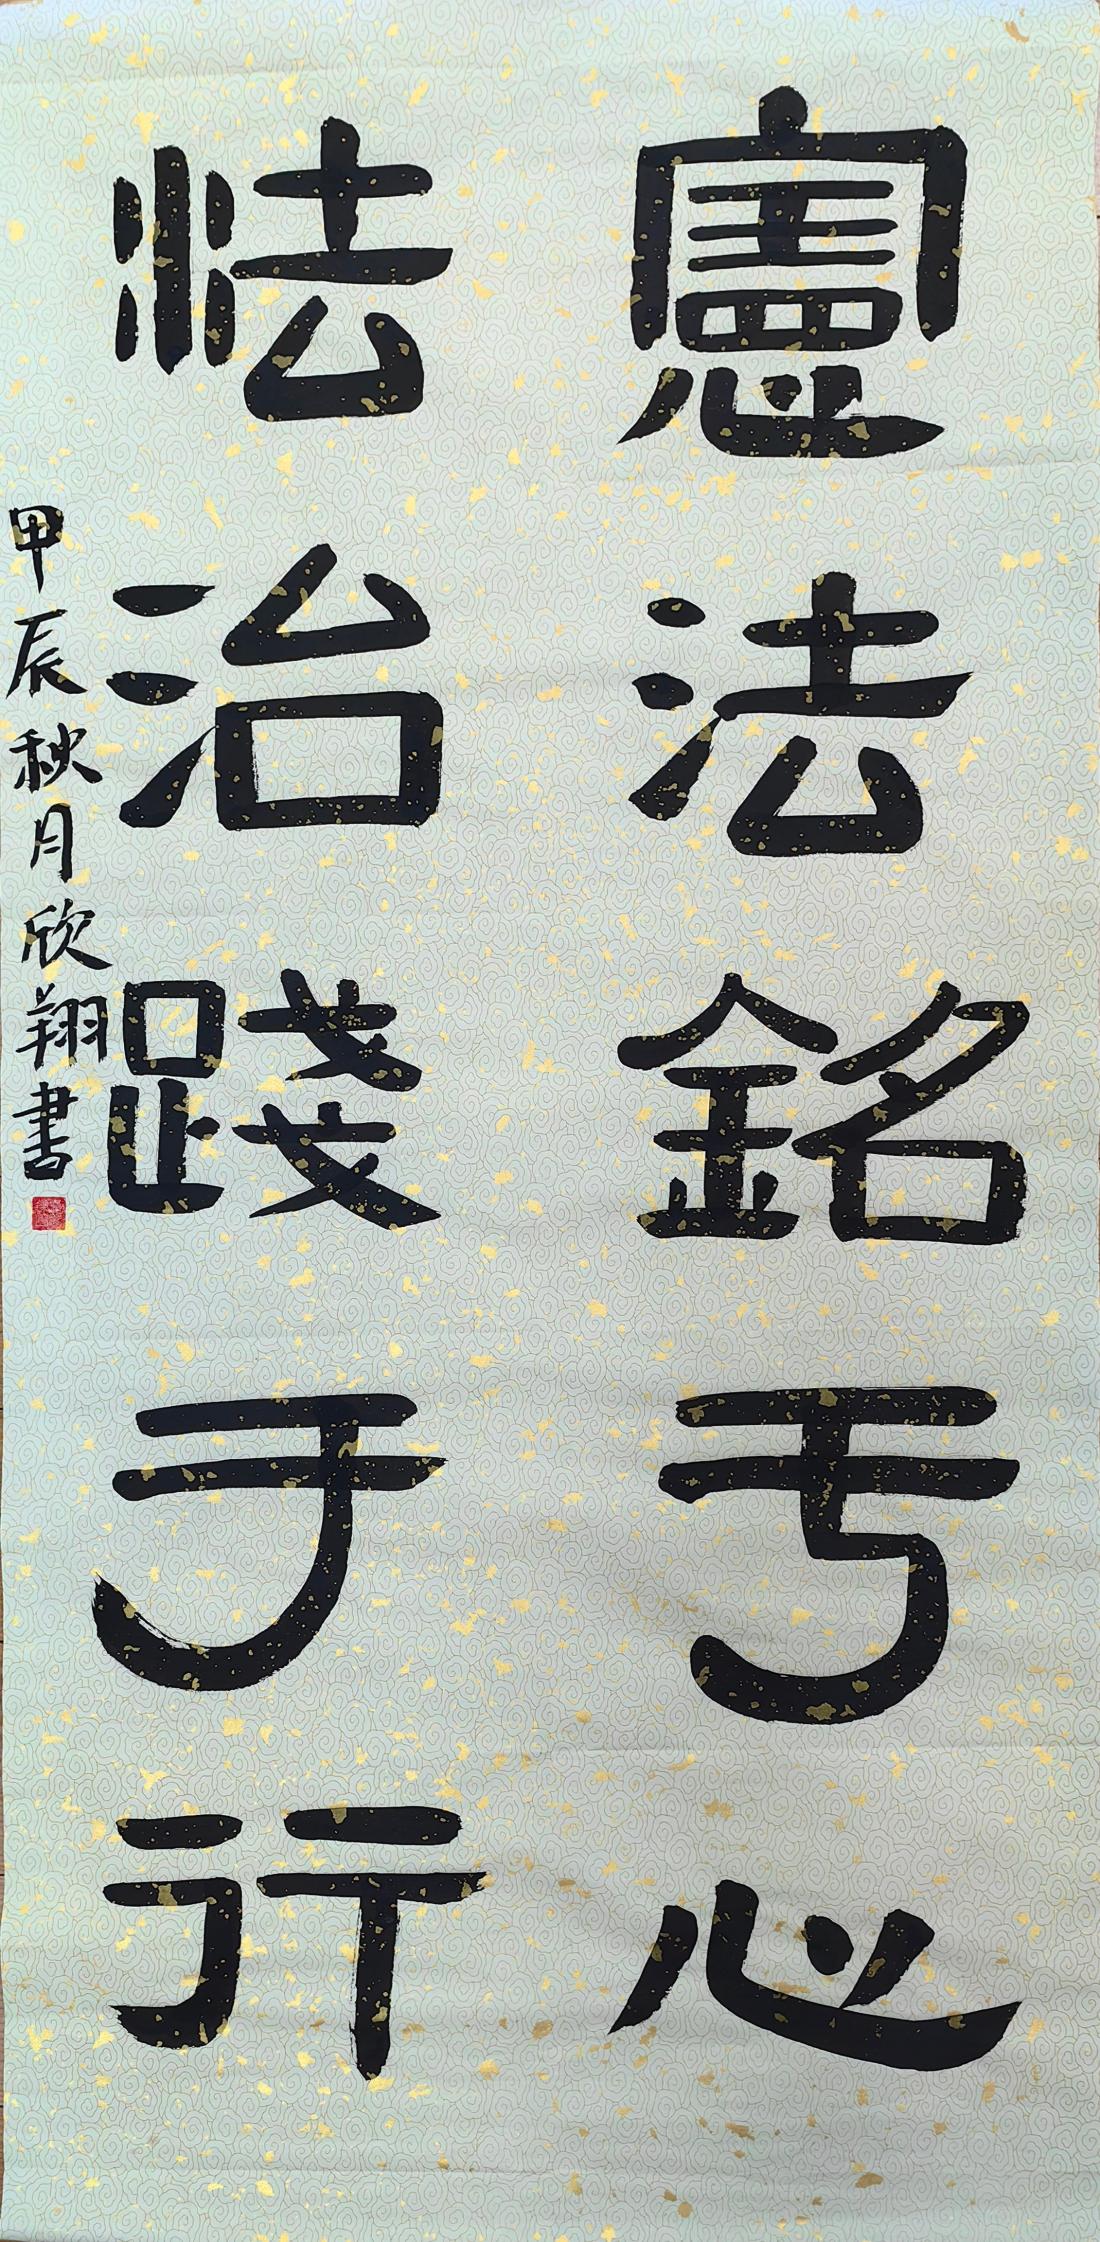 憲法銘亐心
法治踐于行
甲辰秋月欣翔書